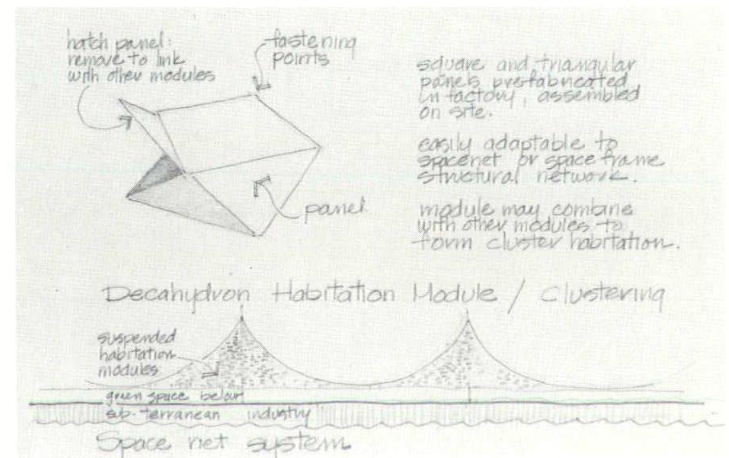 hatch panel:
remove to link
with other modules
fastening
points
panel
square and triangular
panels prefabricated
in factory, assembled
on site.
easily adaptable to
spacenet or space frame
structural network.
module may combine
with other modules to
form cluster habitation.
Decahydron Habitation Module / Clustering
suspended
habitation
modules
green space below
sub-terranean industry
Space net system